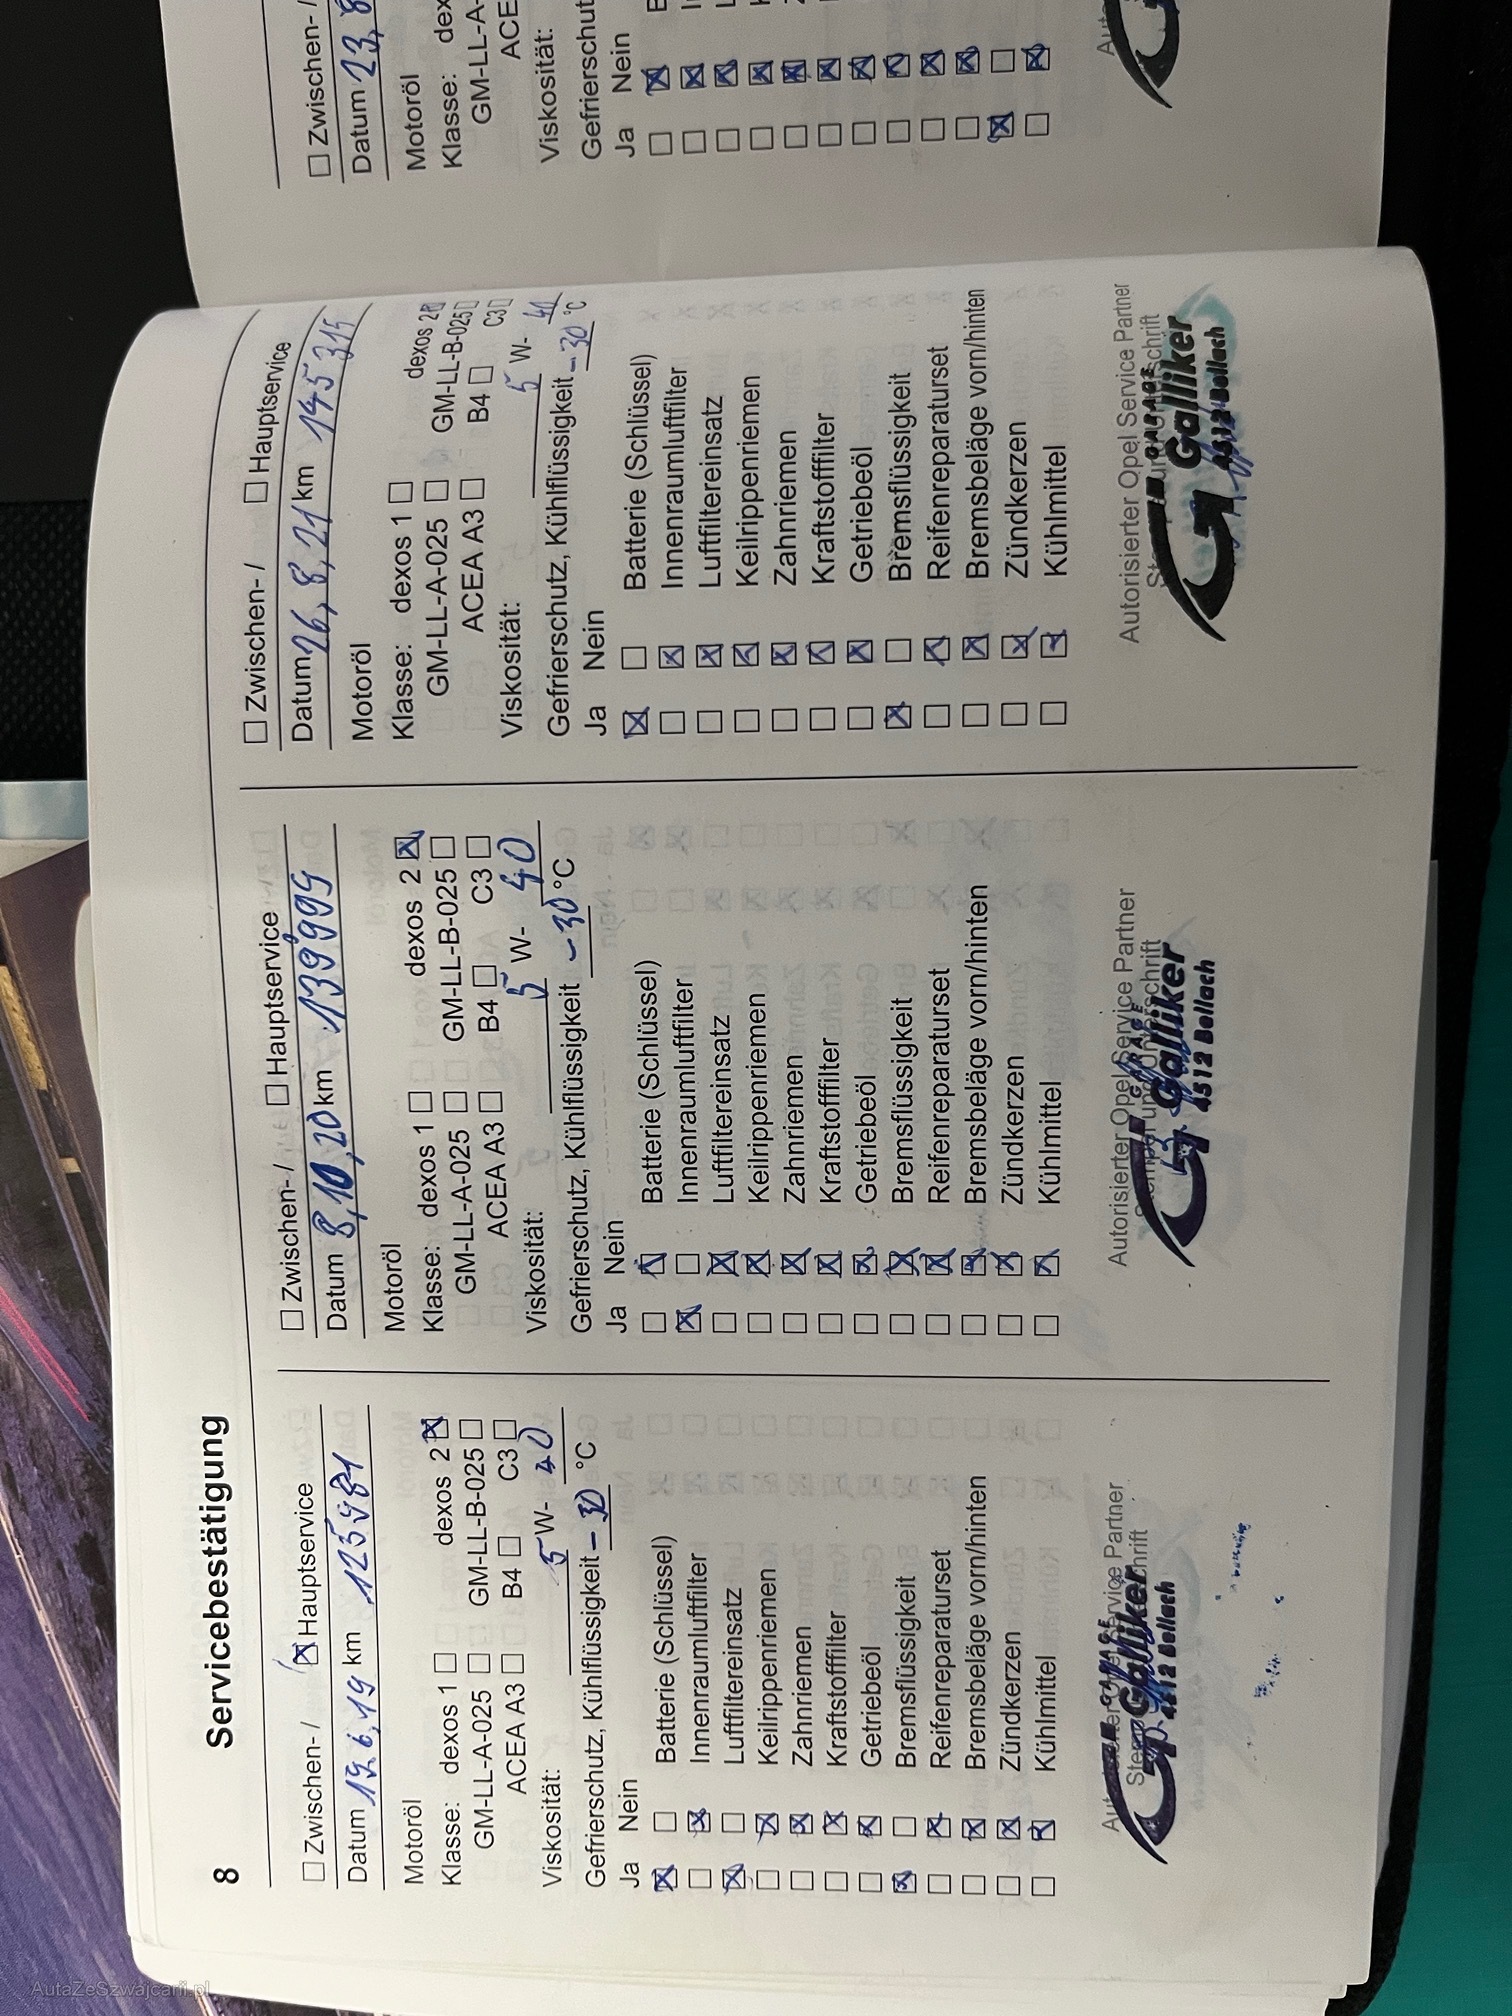 8 Servicebestätigung
☐ Zwischen- / ☒ Hauptservice
Datum 19.6,19 km 125981
Motoröl
Klasse: dexos 1 ☐ dexos 2 ☒
GM-LL-A-025 ☐ GM-LL-B-025 ☐
ACEA A3 ☐ B4 ☐ C3 ☐
Viskosität: 5 W- 40
Gefrierschutz, Kühlflüssigkeit -30 °C
Ja Nein
☒ ☐ Batterie (Schlüssel)
☐ ☒ Innenraumluftfilter
☒ ☐ Luftfiltereinsatz
☐ ☒ Keilrippenriemen
☐ ☒ Zahnriemen
☐ ☒ Kraftstofffilter
☐ ☒ Getriebeöl
☒ ☐ Bremsflüssigkeit
☐ ☒ Reifenreparaturset
☐ ☒ Bremsbeläge vorn/hinten
☐ ☒ Zündkerzen
☐ ☒ Kühlmittel
Autorisierter Opel Service Partner
Stempel und Unterschrift
GARAGE
Galliker
4512 Bellach
☐ Zwischen- / ☐ Hauptservice
Datum 8,10,20 km 139'999
Motoröl
Klasse: dexos 1 ☐ dexos 2 ☒
GM-LL-A-025 ☐ GM-LL-B-025 ☐
ACEA A3 ☐ B4 ☐ C3 ☐
Viskosität: 5 W- 40
Gefrierschutz, Kühlflüssigkeit -30 °C
Ja Nein
☐ ☒ Batterie (Schlüssel)
☒ ☐ Innenraumluftfilter
☐ ☒ Luftfiltereinsatz
☐ ☒ Keilrippenriemen
☐ ☒ Zahnriemen
☐ ☒ Kraftstofffilter
☐ ☒ Getriebeöl
☐ ☒ Bremsflüssigkeit
☐ ☒ Reifenreparaturset
☐ ☒ Bremsbeläge vorn/hinten
☐ ☒ Zündkerzen
☐ ☒ Kühlmittel
Autorisierter Opel Service Partner
Stempel und Unterschrift
GARAGE
Galliker
4512 Bellach
☐ Zwischen- / ☐ Hauptservice
Datum 26,8,21 km 145315
Motoröl
Klasse: dexos 1 ☐ dexos 2 ☒
GM-LL-A-025 ☐ GM-LL-B-025 ☐
ACEA A3 ☐ B4 ☐ C3 ☐
Viskosität: 5 W- 40
Gefrierschutz, Kühlflüssigkeit -30 °C
Ja Nein
☒ ☐ Batterie (Schlüssel)
☐ ☒ Innenraumluftfilter
☐ ☒ Luftfiltereinsatz
☐ ☒ Keilrippenriemen
☐ ☒ Zahnriemen
☐ ☒ Kraftstofffilter
☐ ☒ Getriebeöl
☒ ☐ Bremsflüssigkeit
☐ ☒ Reifenreparaturset
☐ ☒ Bremsbeläge vorn/hinten
☐ ☒ Zündkerzen
☐ ☒ Kühlmittel
Autorisierter Opel Service Partner
Stempel und Unterschrift
GARAGE
Galliker
4512 Bellach
☐ Zwischen- /
Datum 23,8
Motoröl
Klasse: dex
GM-LL-A-
ACE
Viskosität:
Gefrierschut
Ja Nein
AutaZeSzwajcarii.pl